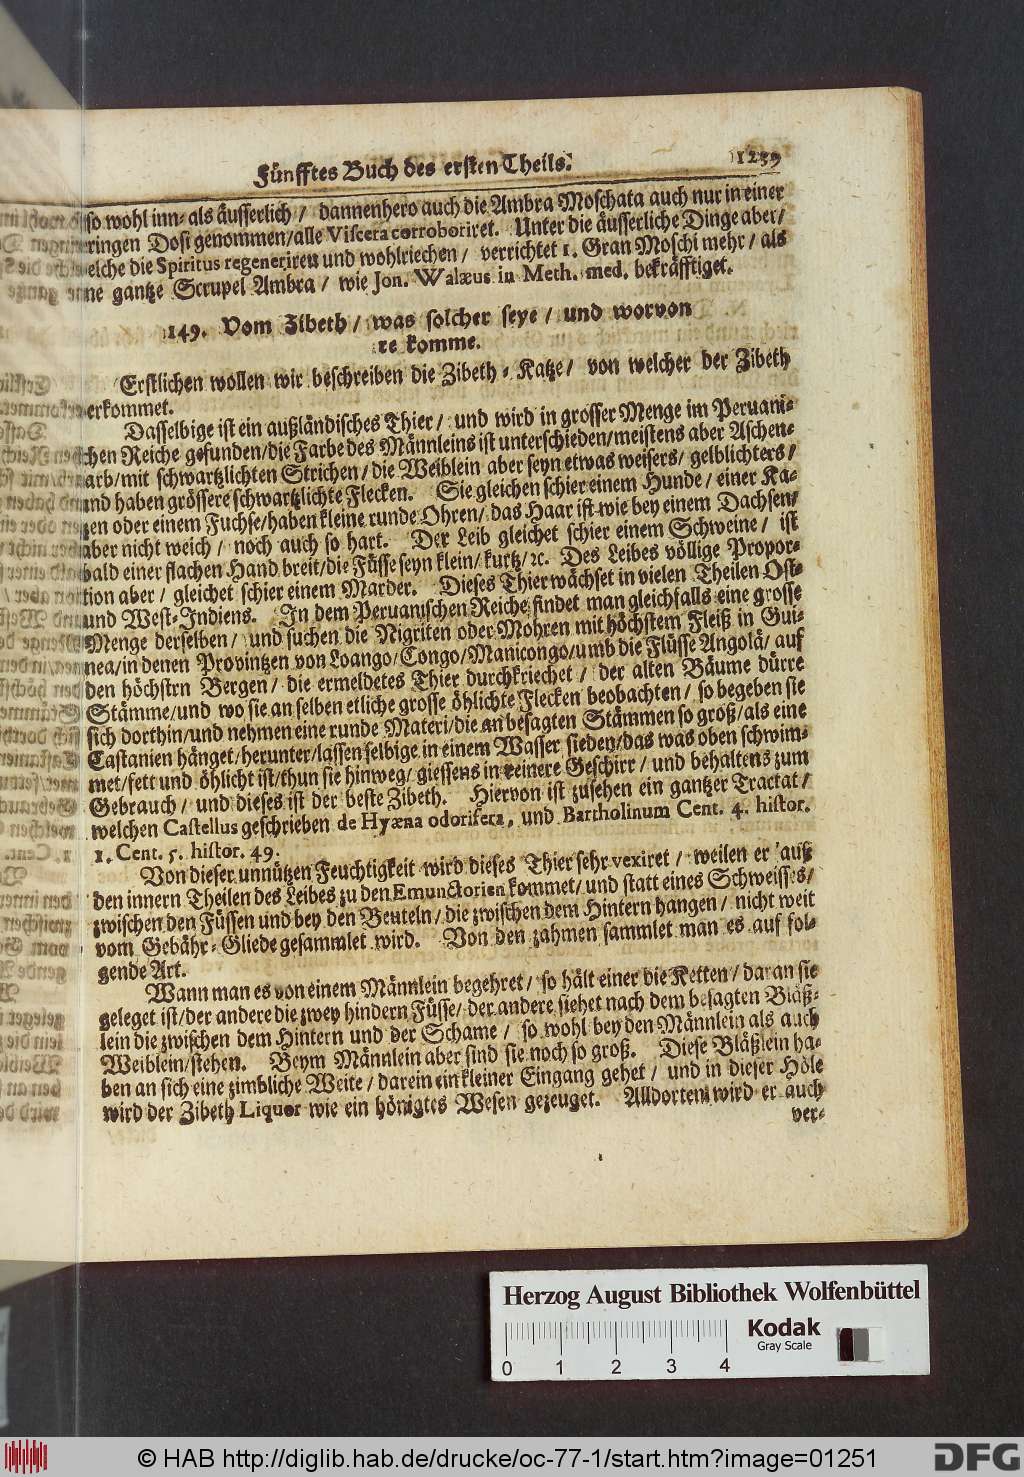 Fünfftes Buch des ersten Theils. 1239
so wohl inn- als äusserlich / dannenhero auch die Ambra Moschata auch nur in einer
ringen Dosi genommen/alle Viscera corroboriret. Unter die äusserliche Dinge aber/
elche die Spiritus regeneriren und wohlriechen / verrichtet 1. Gran Moschi mehr / als
ne gantze Scrupel Ambra / wie Jon. Walæus in Meth. med. bekräfftiget.
149. Vom Zibeth / was solcher seye / und worvon
re komme.
Erstlichen wollen wir beschreiben die Zibeth-Katze / von welcher der Zibeth
erkommet.
Dasselbige ist ein außländisches Thier / und wird in grosser Menge im Peruani-
chen Reiche gefunden/die Farbe des Männleins ist unterschieden/meistens aber Aschen-
arb/mit schwartzlichten Strichen / die Weiblein aber seyn etwas weisers/ gelblichters /
und haben grössere schwartzlichte Flecken. Sie gleichen schier einem Hunde / einer Ka-
zen oder einem Fuchse/haben kleine runde Ohren/ das Haar ist wie bey einem Dachsen/
aber nicht weich / noch auch so hart. Der Leib gleichet schier einem Schweine / ist
bald einer flachen Hand breit/die Füsse seyn klein/ kurtz/ ꝛc. Des Leibes völlige Propor-
tion aber / gleichet schier einem Marder. Dieses Thier wächset in vielen Theilen Ost-
und West-Indiens. In dem Peruanischen Reiche findet man gleichfalls eine grosse
Menge derselben / und suchen die Nigriten oder Mohren mit höchstem Fleiß in Gui-
nea/in denen Provintzen von Loango/Congo/Manicongo/umb die Flüsse Angolä/ auf
den höchstrn Bergen / die ermeldetes Thier durchkriechet / der alten Bäume dürre
Stämme/und wo sie an selben etliche grosse öhlichte Flecken beobachten / so begeben sie
sich dorthin/und nehmen eine runde Materi/die an besagten Stämmen so groß/als eine
Castanien hänget/herunter/lassen selbige in einem Wasser sieden/das was oben schwim-
met/fett und öhlicht ist/thun sie hinweg/ giessens in reinere Geschirr / und behaltens zum
Gebrauch / und dieses ist der beste Zibeth. Hiervon ist zusehen ein gantzer Tractat /
welchen Castellus geschrieben de Hyæna odorifera, und Bartholinum Cent. 4. histor.
1. Cent. 5. histor. 49.
Von dieser unnützen Feuchtigkeit wird dieses Thier sehr vexiret / weilen er auß
den innern Theilen des Leibes zu den Emunctorien kommet/ und statt eines Schweisses/
zwischen den Füssen und bey den Beuteln / die zwischen dem Hintern hangen / nicht weit
vom Gebähr-Gliede gesammlet wird. Von den zahmen sammlet man es auf fol-
gende Art.
Wann man es von einem Männlein begehret / so hält einer die Ketten / daran sie
geleget ist/der andere die zwey hindern Füsse/ der andere siehet nach dem besagten Bläß-
lein die zwischen dem Hintern und der Schame / so wohl bey den Männlein als auch
Weiblein/stehen. Beym Männlein aber sind sie noch so groß. Diese Bläßlein ha-
ben an sich eine zimbliche Weite / darein ein kleiner Eingang gehet / und in dieser Höle
wird der Zibeth Liquor wie ein hönigtes Wesen gezeuget. Alldorten wird er auch
ver-
Herzog August Bibliothek Wolfenbüttel
Kodak
Gray Scale
0 1 2 3 4
© HAB http://diglib.hab.de/drucke/oc-77-1/start.htm?image=01251
DFG